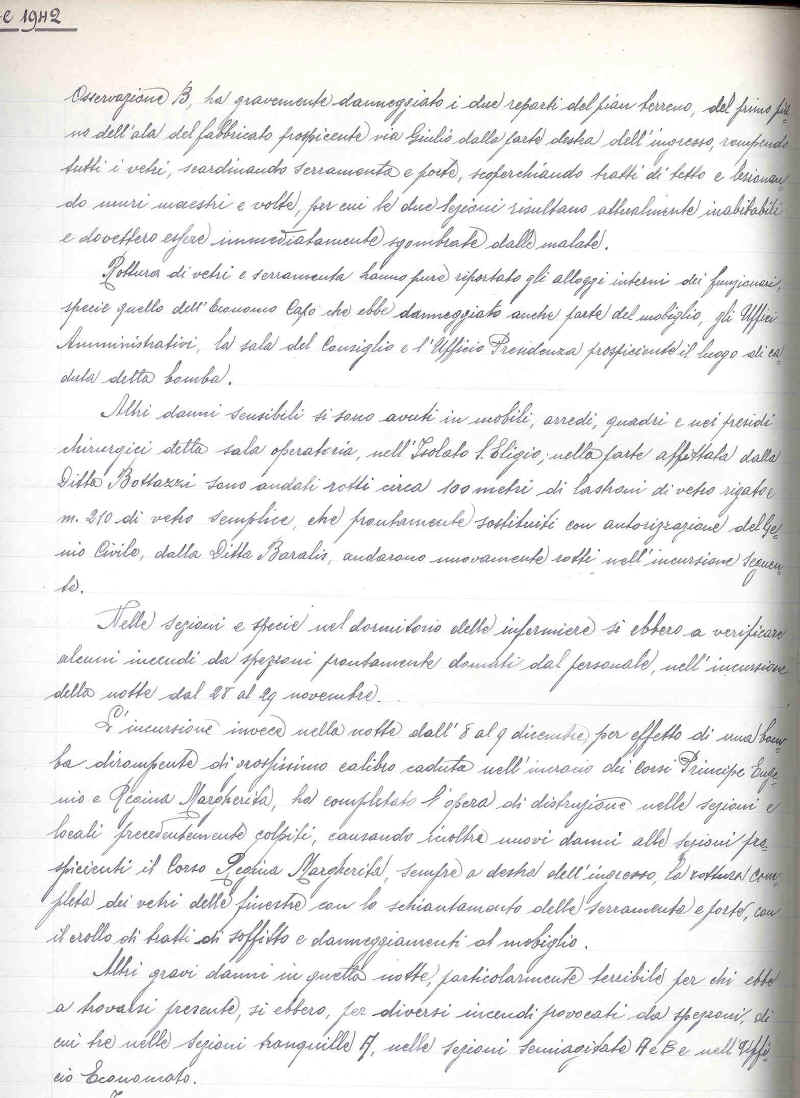 e 1942
Osservazione B, ha gravemente danneggiato i due reparti del pian terreno, del primo pia-
no dell'ala del fabbricato prospicente via Giulio dalla parte destra dell'ingresso, rompendo
tutti i vetri, scardinando serramenta e porte, scoperchiando tratti di tetto e lesionan-
do muri maestri e volte, per cui le due sezioni risultano attualmente inabitabili
e dovettero essere immediatamente sgombrate dalle malate.
Rottura di vetri e serramenta hanno pure riportato gli alloggi interni dei funzionari,
specie quello dell'Economo Capo che ebbe danneggiato anche parte del mobiglio, gli Uffici
Amministrativi, la sala del Consiglio e l'Ufficio Presidenza prospiciente il luogo di ca-
duta della bomba.
Altri danni sensibili si sono avuti in mobili, arredi, quadri e nei presidi
chirurgici della sala operatoria, nell'Isolato S. Eligio; nella parte affittata dalla
Ditta Bottazzi sono andati rotti circa 100 metri di lastroni di vetro rigato e
m. 210 di vetro semplice, che prontamente sostituiti con autorizzazione del Ge-
nio Civile, dalla Ditta Baralis, andarono nuovamente rotti nell'incursione seguen-
te.
Nelle sezioni e specie nel dormitorio delle infermiere si ebbero a verificare
alcuni incendi da spezzoni prontamente domati dal personale, nell'incursione
della notte dal 28 al 29 novembre.
L'incursione invece nella notte dall'8 al 9 dicembre, per effetto di una bom-
ba dirompente di grossissimo calibro caduta nell'incrocio dei Corsi Principe Euge-
nio e Regina Margherita, ha completato l'opera di distruzione nelle sezioni e
locali precedentemente colpiti, causando inoltre nuovi danni alle sezioni pro-
spicienti il Corso Regina Margherita, sempre a destra dell'ingresso, la rottura com-
pleta dei vetri delle finestre con lo schiantamento delle serramenta e porte, con
il crollo di tratti di soffitto e danneggiamenti al mobiglio.
Altri gravi danni in quella notte, particolarmente terribile per chi ebbe
a trovarsi presente, si ebbero, per diversi incendi provocati da spezzoni, di
cui tre nelle sezioni tranquille A, nelle sezioni semiagitate A e B e nell'Uffi-
cio Economato.